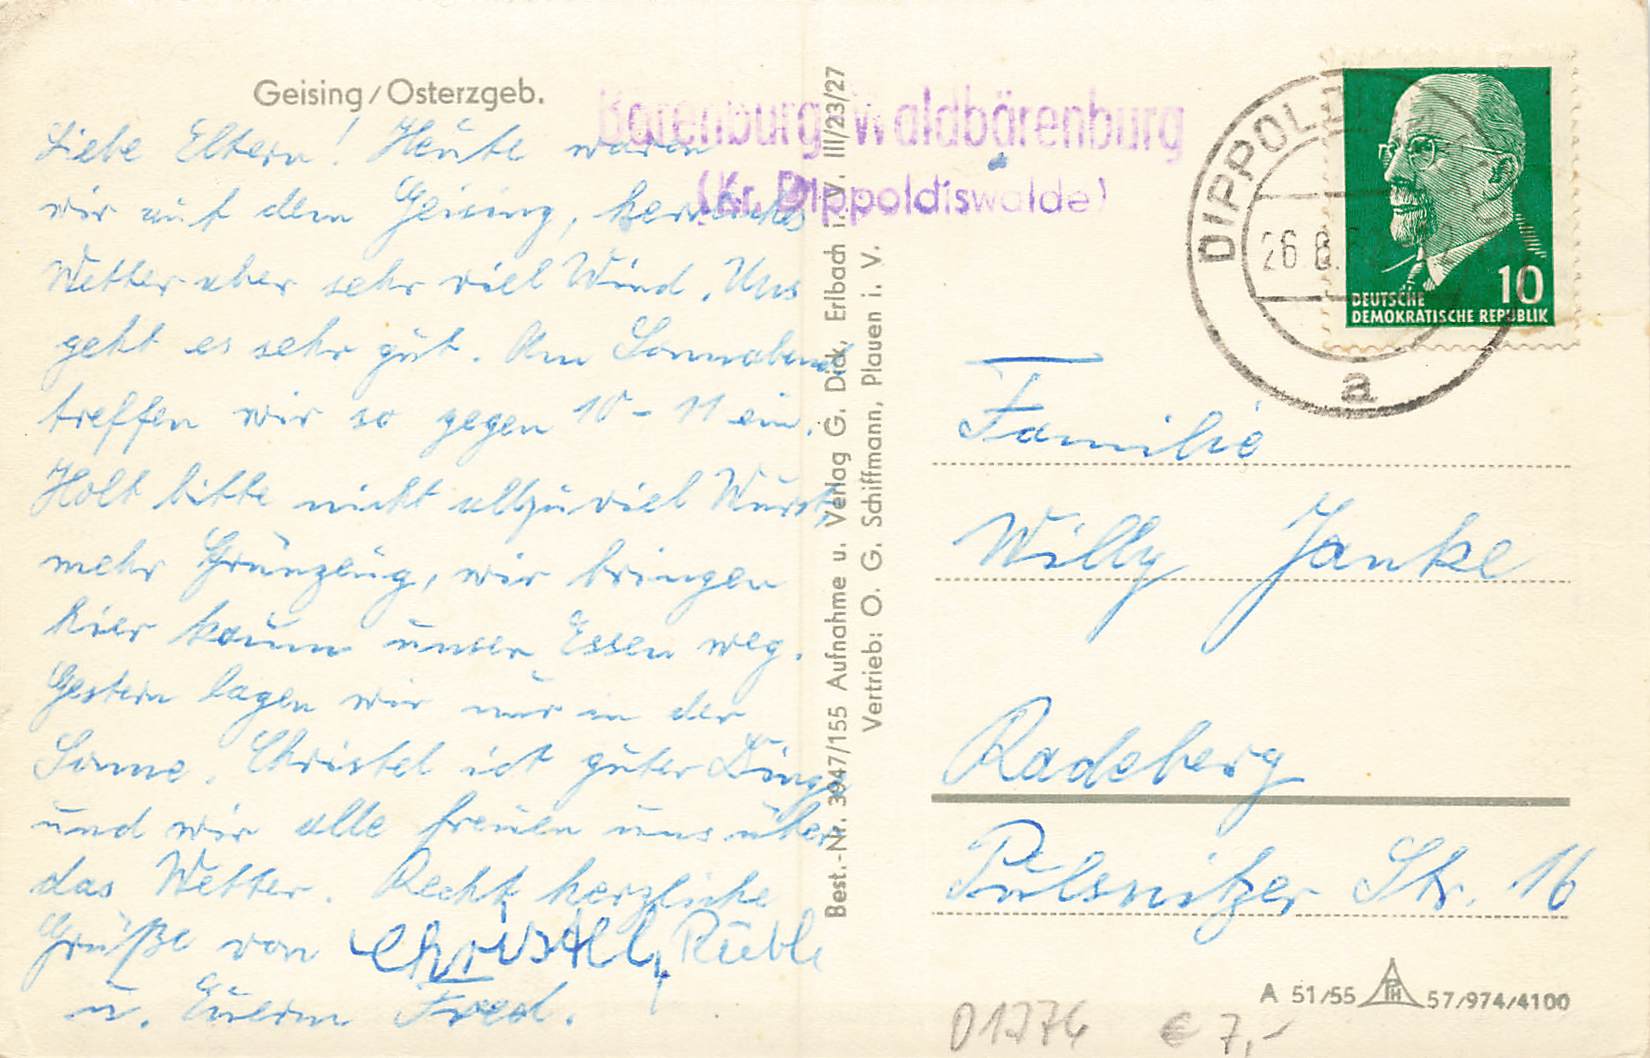 Geising/Osterzgeb.
Liebe Eltern! Heute waren
wir auf dem Geising, herrliches
Wetter aber sehr viel Wind. Uns
geht es sehr gut. Am Sonnabend
treffen wir so gegen 10-11 ein.
Holt bitte nicht allzuviel Wurst,
mehr Grünzeug, wir bringen
hier kaum unser Essen weg.
Gestern lagen wir nur in der
Sonne. Christel ist guter Dinge
und wir alle freuen uns über
das Wetter. Recht herzliche
Grüße von Christel,
u. Euerm Fred.
Best.-Nr. 3947/155 Aufnahme u. Verlag G. Dick, Erlbach i. V. III/23/27
Vertrieb: O. G. Schiffmann, Plauen i. V.
Bärenburg Waldbärenburg
(Kr. Dippoldiswalde)
26.8.
a
10
DEUTSCHE
DEMOKRATISCHE REPUBLIK
Familie
Willy Janke
Radeberg
Pulsnitzer Str. 16
A 51/55 57/974/4100
D1774 € 7,-